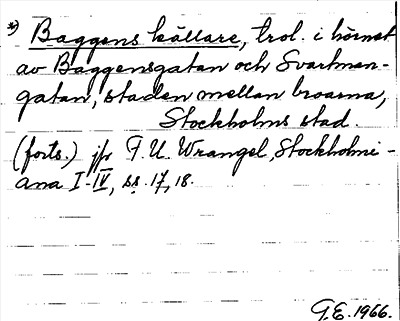 *) Baggens källare, trol. i hörnet
av Baggensgatan och Svartman-
gatan, staden mellan broarna,
Stockholms stad.
(forts.) jfr F. U. Wrangel, Stockholmi-
ana I-IV, ss. 17, 18.
G.E. 1966.